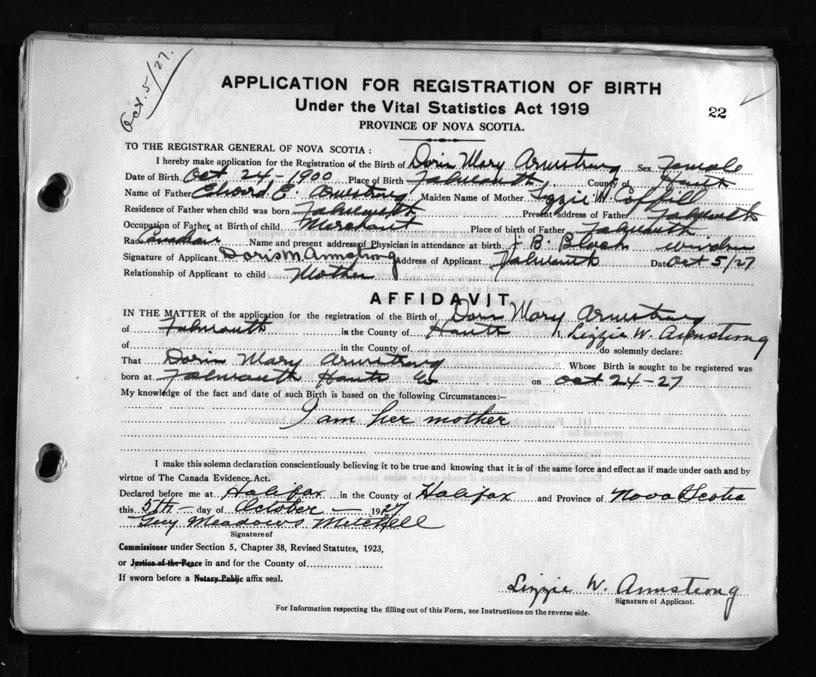 Oct. 5/27.
APPLICATION FOR REGISTRATION OF BIRTH
Under the Vital Statistics Act 1919
22
PROVINCE OF NOVA SCOTIA.
TO THE REGISTRAR GENERAL OF NOVA SCOTIA :
I hereby make application for the Registration of the Birth of Doris Mary Armstrong Sex Female
Date of Birth Oct 24-1900 Place of Birth Falmouth County of Hants
Name of Father Edward E. Armstrong Maiden Name of Mother Lizzie W. Coffill
Residence of Father when child was born Falmouth Present address of Father Falmouth
Occupation of Father at Birth of child Merchant Place of birth of Father Falmouth
Race Canadian Name and present address of Physician in attendance at birth J. B. Black Windsor
Signature of Applicant Doris M Armstrong Address of Applicant Falmouth Date Oct 5/27
Relationship of Applicant to child Mother
AFFIDAVIT
IN THE MATTER of the application for the registration of the Birth of Doris Mary Armstrong
of Falmouth in the County of Hants I, Lizzie W. Armstrong
of in the County of do solemnly declare:
That Doris Mary Armstrong Whose Birth is sought to be registered was
born at Falmouth Hants Co on Oct 24-27
My knowledge of the fact and date of such Birth is based on the following Circumstances:—
I am her mother
I make this solemn declaration conscientiously believing it to be true and knowing that it is of the same force and effect as if made under oath and by
virtue of The Canada Evidence Act.
Declared before me at Halifax in the County of Halifax and Province of Nova Scotia
this 5th - day of October - 1927
Guy Meadows Mitchell
Signature of
Commissioner under Section 5, Chapter 38, Revised Statutes, 1923,
or Justice of the Peace in and for the County of
If sworn before a Notary Public affix seal.
Lizzie W. Armstrong
Signature of Applicant.
For Information respecting the filling out of this Form, see Instructions on the reverse side.